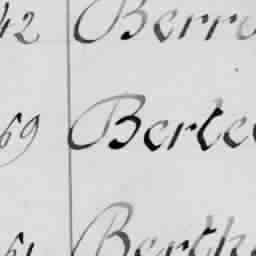 42 Berr
69 Berte
51 Berth